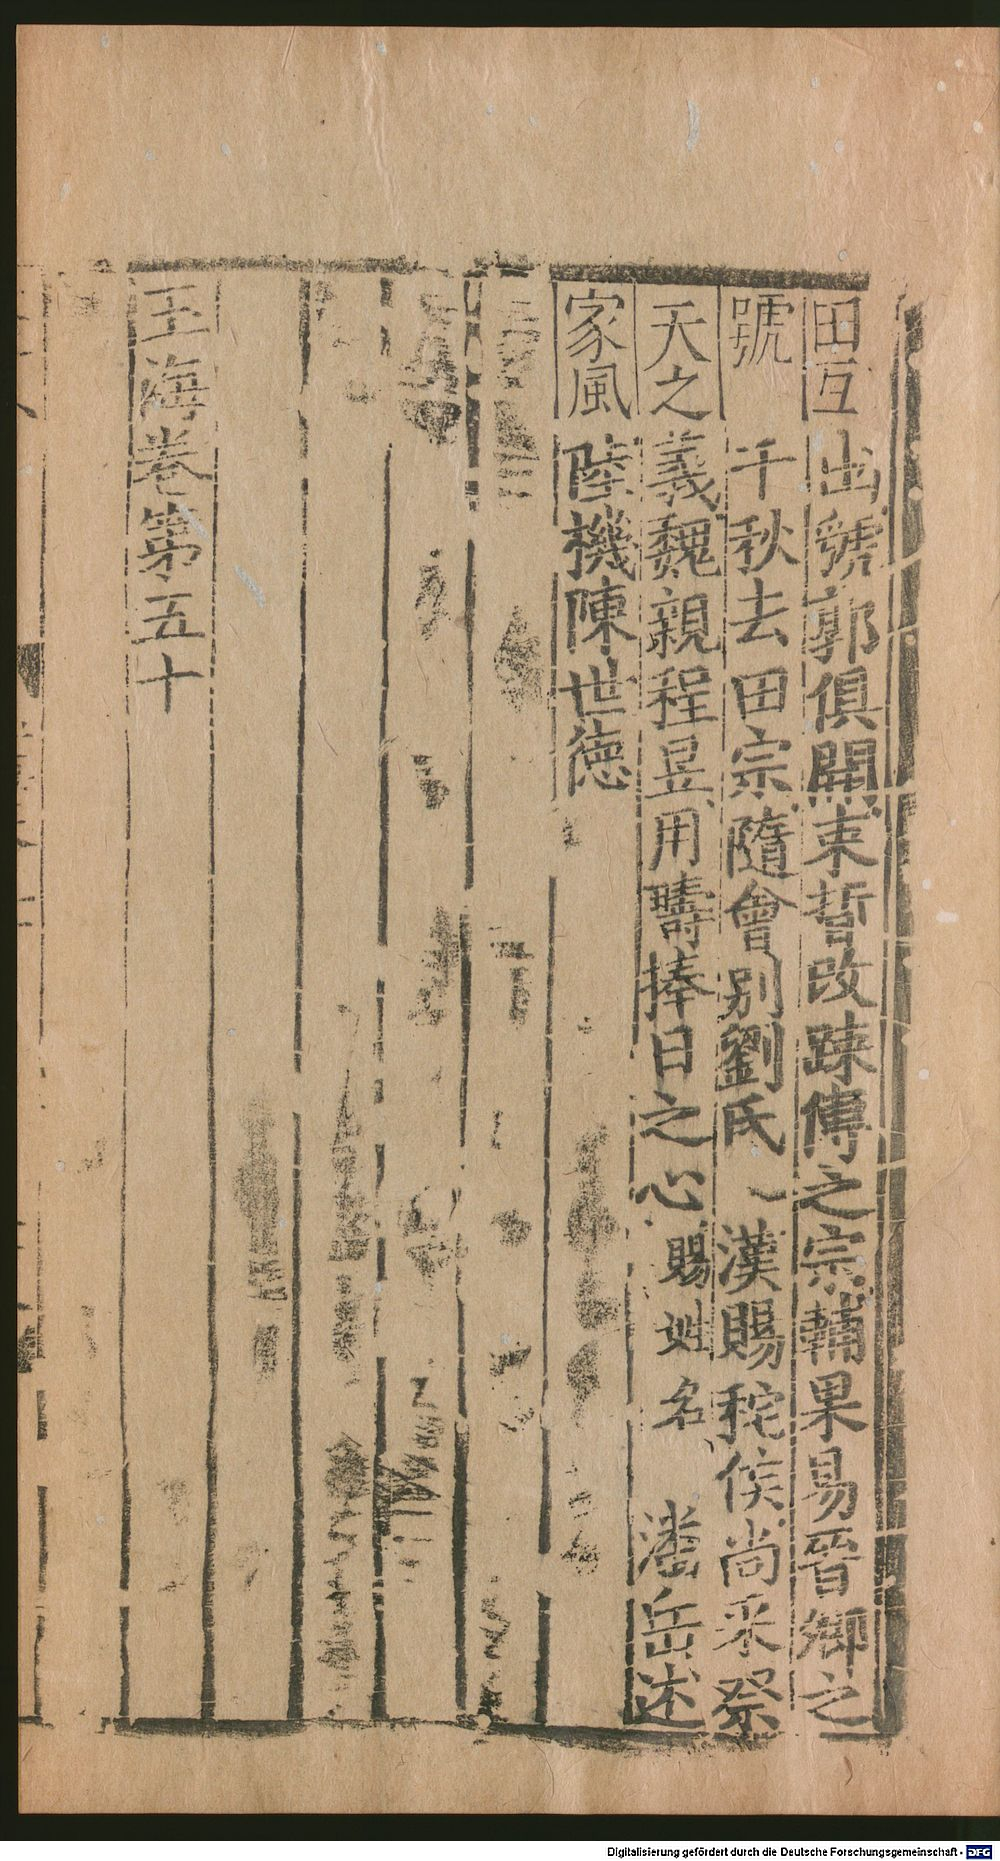 田互出號郭俱開束晳改踈傅之宗輔果易晉卿之
號千秋去田宗隨會別劉氏漢賜秺侯尚釆祭
天之義魏親程昱用疇捧日之心賜姓名潘岳述
家風陸機陳世德
玉海卷第五十
Digitalisierung gefördert durch die Deutsche Forschungsgemeinschaft - DFG